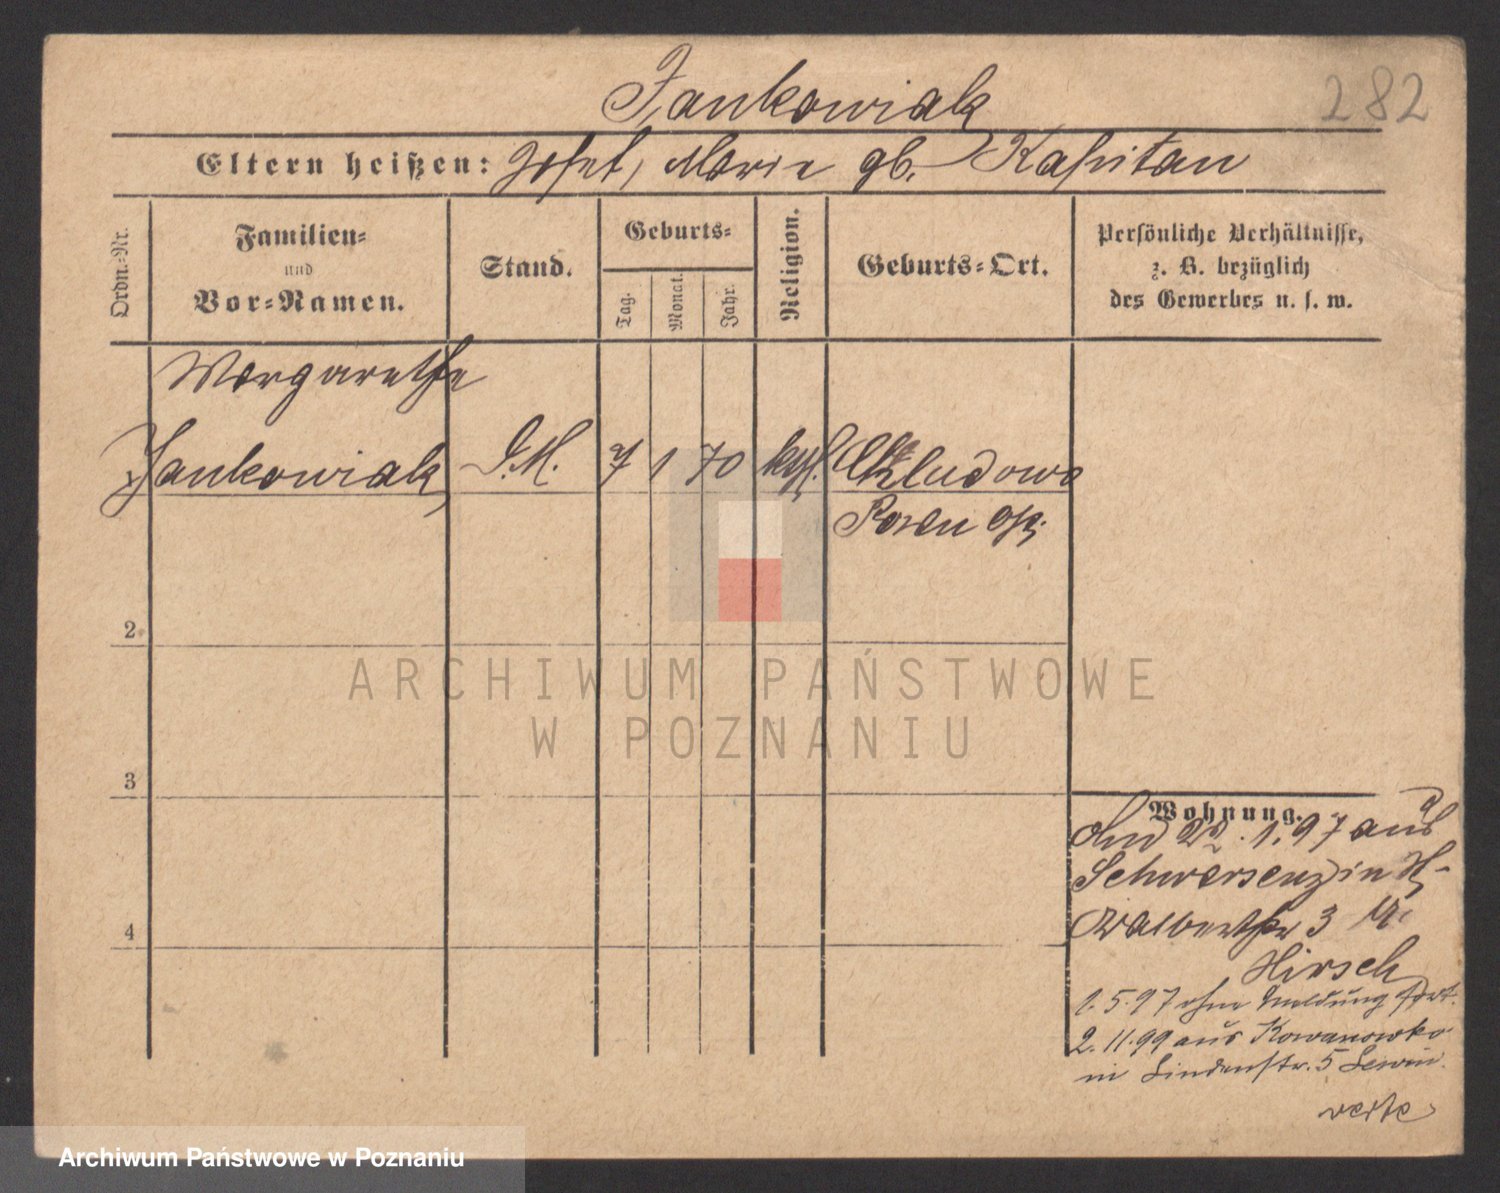 Jankowiak
282
Eltern heißen: Josef, Marie gb. Kapitan
Ordn.-Nr.
Familien-
und
Vor-Namen.
Stand.
Geburts-
Tag.
Monat.
Jahr.
Religion.
Geburts-Ort.
Persönliche Verhältnisse,
z. B. bezüglich
des Gewerbes u. s. w.
Margarethe
Jankowiak D.M. 7 1 70 kath. Chludowo
Posen
2.
3
4
Wohnung.
22.1.97 aus
Schwersenz in
3
Hirsch
1.5.97 ohne Meldung fort.
2.11.99 aus Kowanowko
in Lindenstr. 5 Lewin.
verte
ARCHIWUM PAŃSTWOWE
W POZNANIU
Archiwum Państwowe w Poznaniu